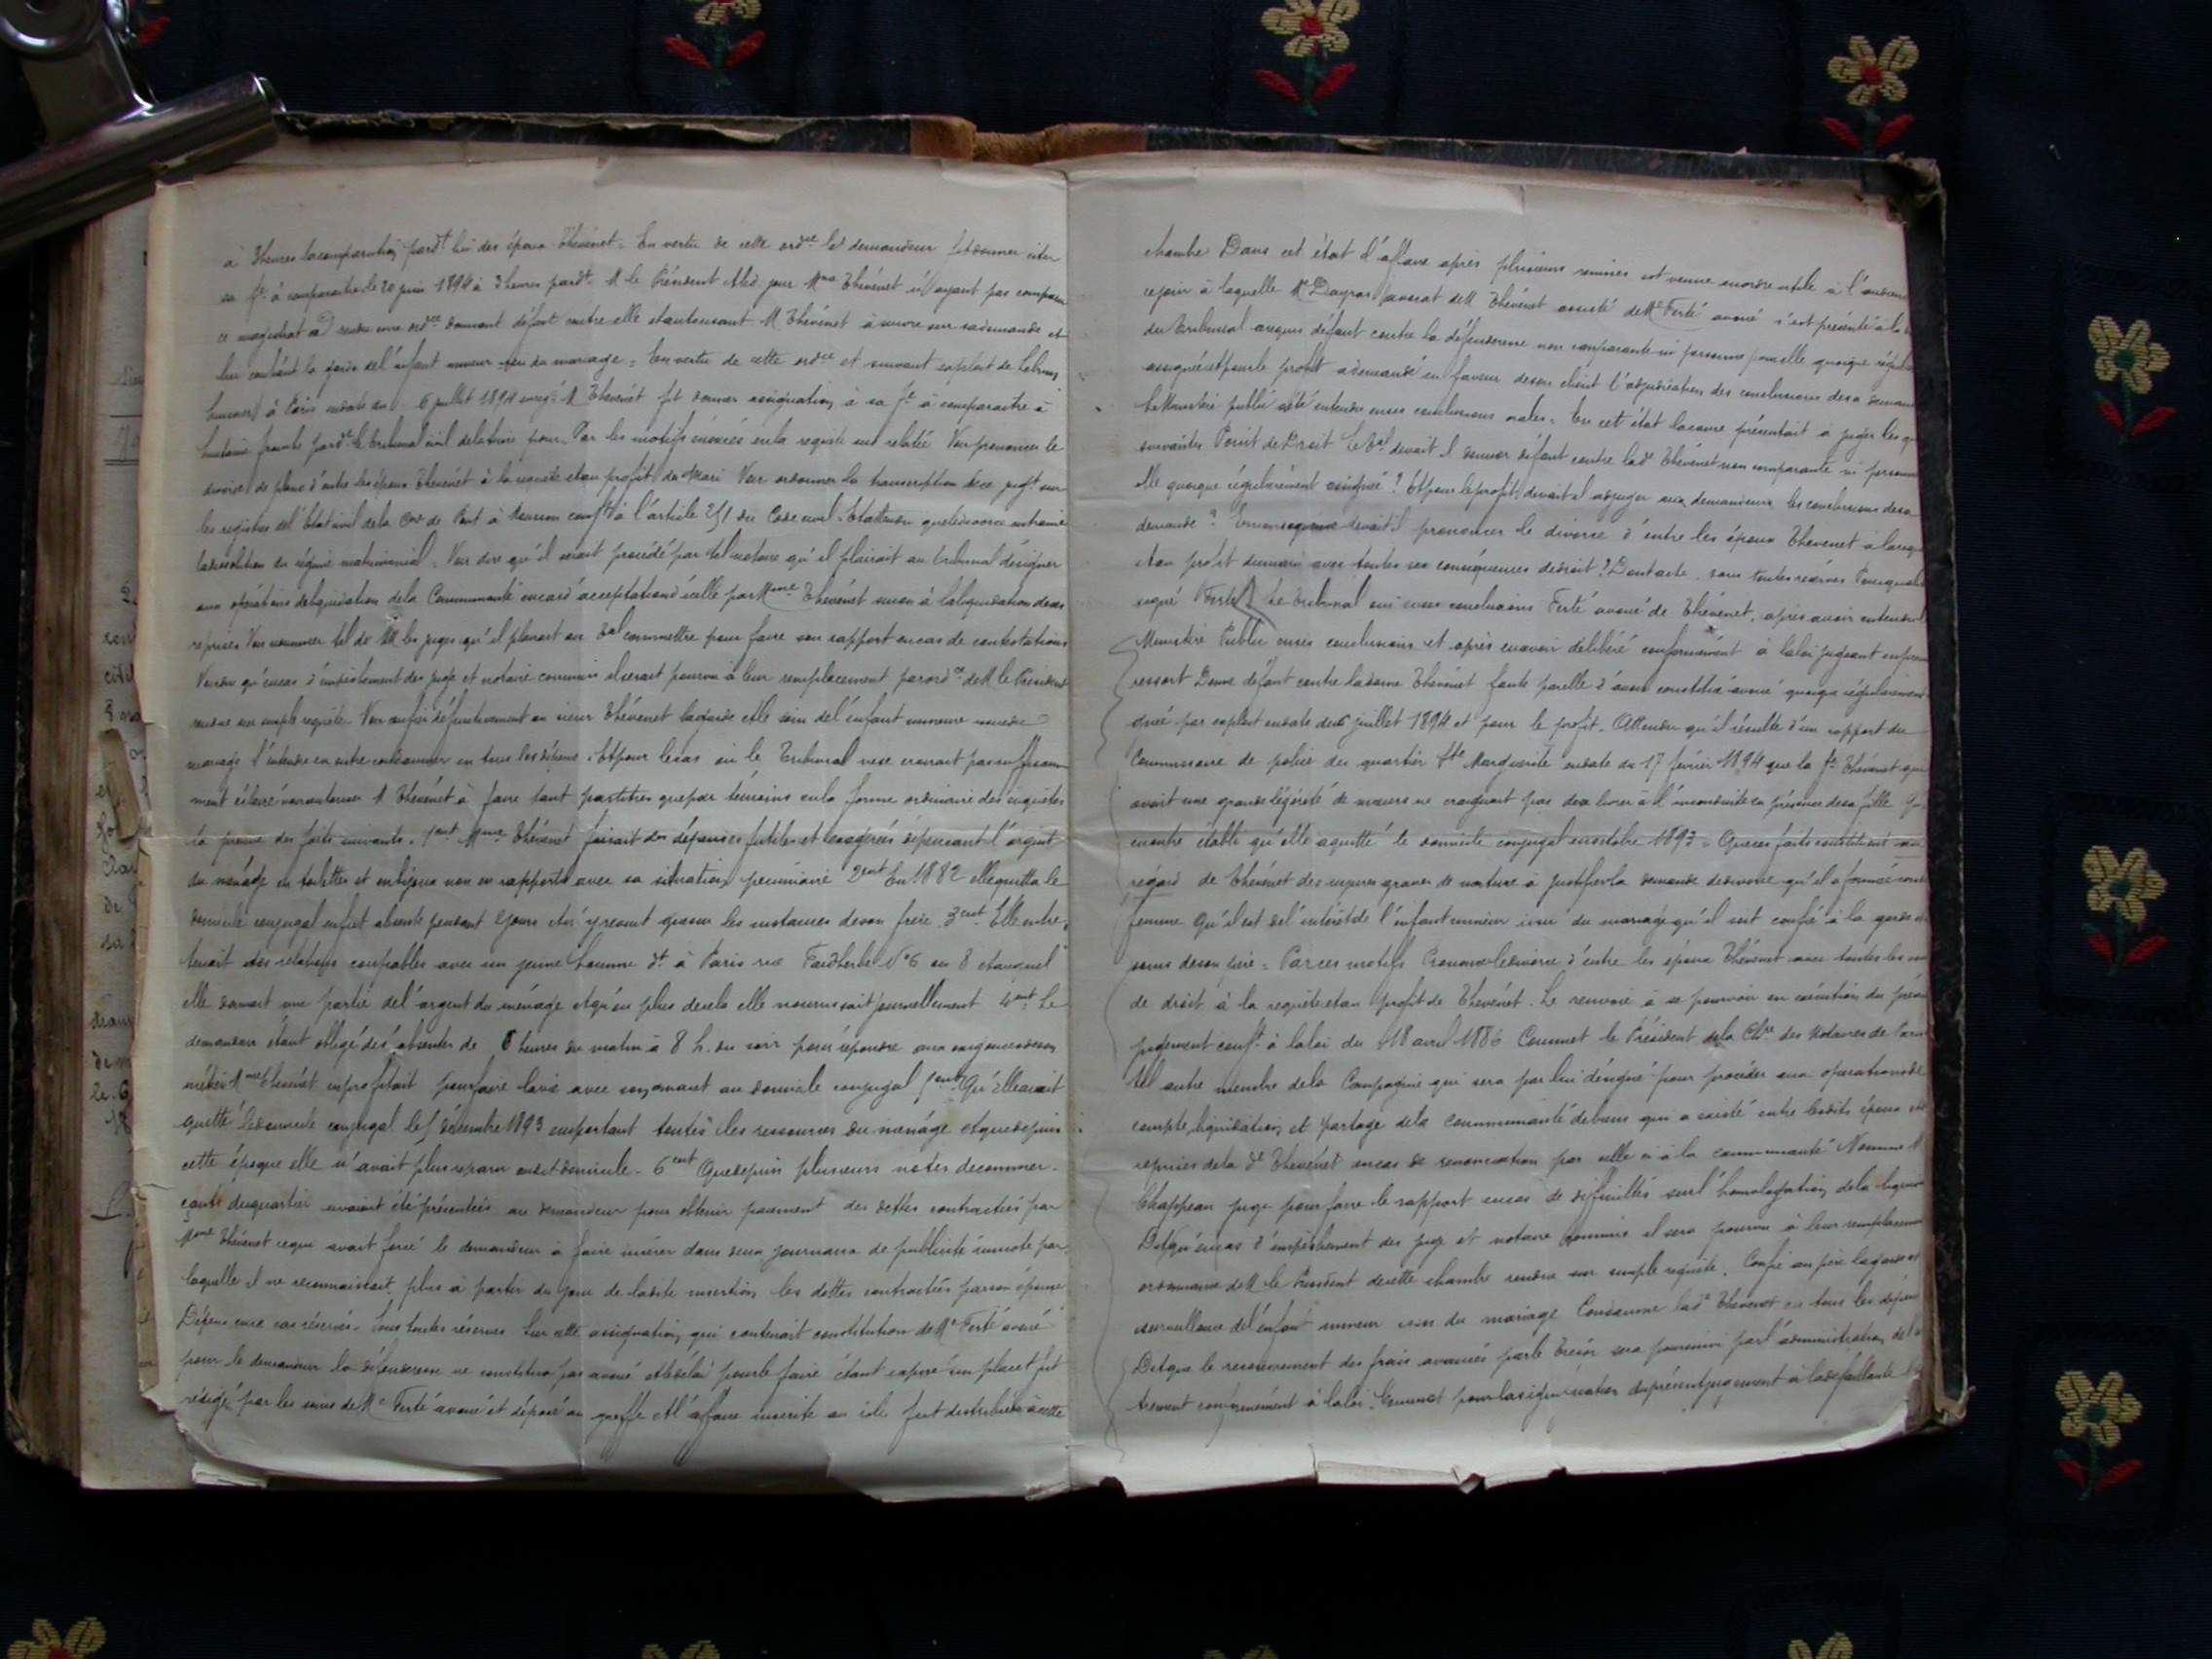 à 3 heures la comparution pard^t lui des époux Thévenet = En vertu de cette ord^ce le demandeur fit donner citer
sa f^e à comparaître le 20 juin 1894 à 3 heures pard^t M le Président Ledit jour M^me Thévenet n'ayant pas comparu
ce magistrat a rendu une ord^ce donnant défaut contre elle et autorisant M Thévenet à suivre sur sa demande et
lui confiant la garde de l'enfant mineur issu du mariage = En vertu de cette ord^ce et suivant exploit de Lebrun
huissier à Paris en date du 6 juillet 1894 enreg^é M Thévenet fit donner assignation à sa f^e à comparaître à
huitaine franche pard^t le tribunal civil de la Seine pour = Par les motifs énoncés en la requête sus relatée Voir prononcer le
divorce de plano d'entre les époux Thévenet à la requête et au profit du Mari Voir ordonner la transcription du jug^t sur
les registres de l'Etat civil de la C^ne de Pont à Mousson conf^t à l'article 251 du Code civil. Et attendu que le divorce entraine
la dissolution du régime matrimonial. Voir dire qu'il serait procédé par tel notaire qu'il plairait au tribunal désigner
aux opérations de liquidation de la Communauté en cas d'acceptation d'icelle par M^me Thévenet sinon à la liquidation de ses
reprises Voir nommer tel de MM les juges qu'il plairait au T^al commettre pour faire son rapport en cas de contestations
Voir dire qu'en cas d'empêchement des juge et notaire commis il serait pourvu à leur remplacement par ord^ce de M le Président
rendue sur simple requête. Voir confier définitivement au sieur Thévenet la garde et le soin de l'enfant mineure issue du
mariage S'entendre en outre condamner en tous les dépens. Et pour le cas où le Tribunal ne se croirait pas suffisam
ment éclairé voir autoriser M Thévenet à faire tant par titres que par témoins en la forme ordinaire des enquêtes
la preuve des faits suivants. 1^ent M^me Thévenet faisait des dépenses futiles et exagérées dépensant l'argent
du ménage en toilettes et en bijoux non en rapport avec sa situation pécuniaire 2^ent En 1882 elle quitta le
domicile conjugal en fut absente pendant 2 jours et n'y revint que sur les instances de son frère. 3^ent Elle entre
tenait des relations coupables avec un jeune homme d^t à Paris rue Faidherbe N° 6 ou 8 et auquel
elle donnait une partie de l'argent du ménage et qu'en plus de cela elle nourrissait journellement 4^ent Le
demandeur étant obligé de s'absenter de 6 heures du matin à 8 h. du soir pour répondre aux exigences de son
métier M^me Thévenet en profitait pour faire la vie avec son amant au domicile conjugal 5^ent Qu'elle avait
quitté le domicile conjugal le 5 décembre 1893 emportant toutes les ressources du ménage et que depuis
cette époque elle n'avait plus reparu audit domicile - 6^ent Que depuis plusieurs notes de commer-
çants du quartier avaient été présentées au demandeur pour obtenir paiement des dettes contractées par
M^me Thévenet ce qui avait forcé le demandeur à faire insérer dans deux journaux de publicité une note par
laquelle il ne reconnaissait plus à partir du jour de ladite insertion les dettes contractées par son épouse
Dépens en ce cas réservés. Sous toutes réserves Sur cette assignation qui contenait constitution de M^e Ferté avoué
pour le demandeur la défenderesse ne constitua pas avoué et le délai pour le faire étant expiré un placet fut
rédigé par les soins de M^e Ferté avoué et déposé au greffe et l'affaire inscrite au rôle fut distribuée à cette
chambre Dans cet état l'affaire après plusieurs remises est venue en ordre utile à l'audience
ce jour à laquelle M^e Dayras avocat de M Thévenet assisté de M^e Ferté avoué s'est présenté à la
du tribunal a requis défaut contre la défenderesse non comparante ni personne pour elle quoique réguli
assignée et pour le profit a demandé en faveur de son client l'adjudication des conclusions de sa demande
Le Ministère public a été entendu en ses conclusions orales. En cet état la cause présentait à juger les q
suivantes Point de Droit Le T^al devait il donner défaut contre la d^e Thévenet non comparante ni personne
elle quoique régulièrement assignée ? Et pour le profit devait il adjuger aux demandeurs les conclusions de sa
demande ? En conséquence devait il prononcer le divorce d'entre les époux Thévenet à la req
et au profit du mari avec toutes ses conséquences de droit ? Dont acte sous toutes réserves
signé Ferté Le Tribunal ouï en ses conclusions Ferté avoué de Thévenet, après avoir entendu l
Ministère Public en ses conclusions et après en avoir délibéré conformément à la loi jugeant en prem
ressort Donne défaut contre la dame Thévenet faute par elle d'avoir constitué avoué quoique régulièrement
gnée par exploit en date du 6 juillet 1894 et pour le profit. Attendu qu'il résulte d'un rapport du
Commissaire de police du quartier S^te Marguerite en date du 17 février 1894 que la f^e Thévenet qui
avait une grande légèreté de mœurs ne craignait pas de se livrer à l'inconduite en présence de sa fille Qu
en outre établi qu'elle a quitté le domicile conjugal en octobre 1893 = Que ces faits constituent au
regard de Thévenet des injures graves de nature à justifier la demande de divorce qu'il a formée cont
femme Qu'il est de l'intérêt de l'enfant mineur issu du mariage qu'il soit confié à la garde et
soins de son père = Par ces motifs Prononce le divorce d'entre les époux Thévenet avec toutes les
de droit à la requête et au profit de Thévenet. Le renvoie à se pourvoir en exécution du prés
jugement conf^t à la loi du 18 avril 1886 Commet le Président de la Ch^re des Notaires de Paris
tel autre membre de la Compagnie qui sera par lui désigné pour procéder aux opérations de
compte, liquidation et partage de la communauté de biens qui a existé entre lesdits époux
reprises de la d^e Thévenet en cas de renonciation par elle à la communauté Nomme M
Chappeau juge pour faire le rapport en cas de difficultés sur l'homologation de la liquid
Dit qu'en cas d'empêchement des juge et notaire commis il sera pourvu à leur remplacement
ordonnance de M le Président de cette chambre rendue sur simple requête. Confie au père la garde et
surveillance de l'enfant mineur issu du mariage Condamne la d^e Thévenet en tous les dépens
Dit que le recouvrement des frais avancés par le Trésor sera poursuivi par l'administration de l
trement conformément à la loi. Commet pour la signification du présent jugement à la défaillante